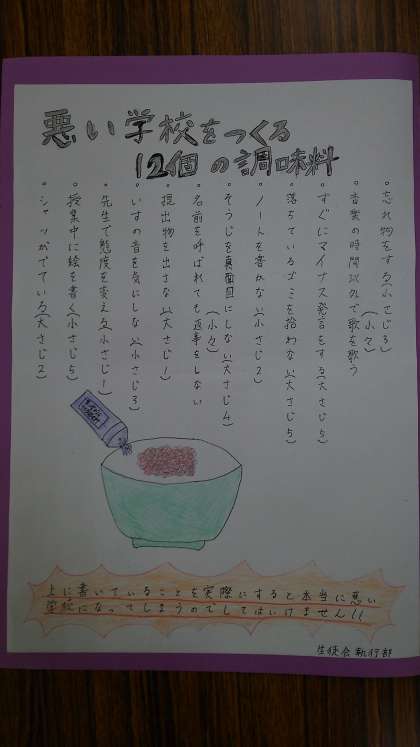 悪い学校をつくる
12個の調味料
・忘れ物をする(小さじ3)
・音楽の時間以外で歌を歌う
(小々)
・すぐにマイナス発言をする(大さじ5)
・落ちているゴミを拾わない(大さじ5)
・ノートを書かない(小さじ2)
・そうじを真面目にしない(大さじ4)
・名前を呼ばれても返事をしない
(小々)
・提出物を出さない(大さじ1)
・いすの音を気にしない(小さじ3)
・先生で態度を変える(小さじ1)
・授業中に絵を書く(小さじ5)
・シャツがでている(大さじ2)
上に書いていることを実際にすると本当に悪い
学校になってしまうのでしてはいけません!!
生徒会執行部